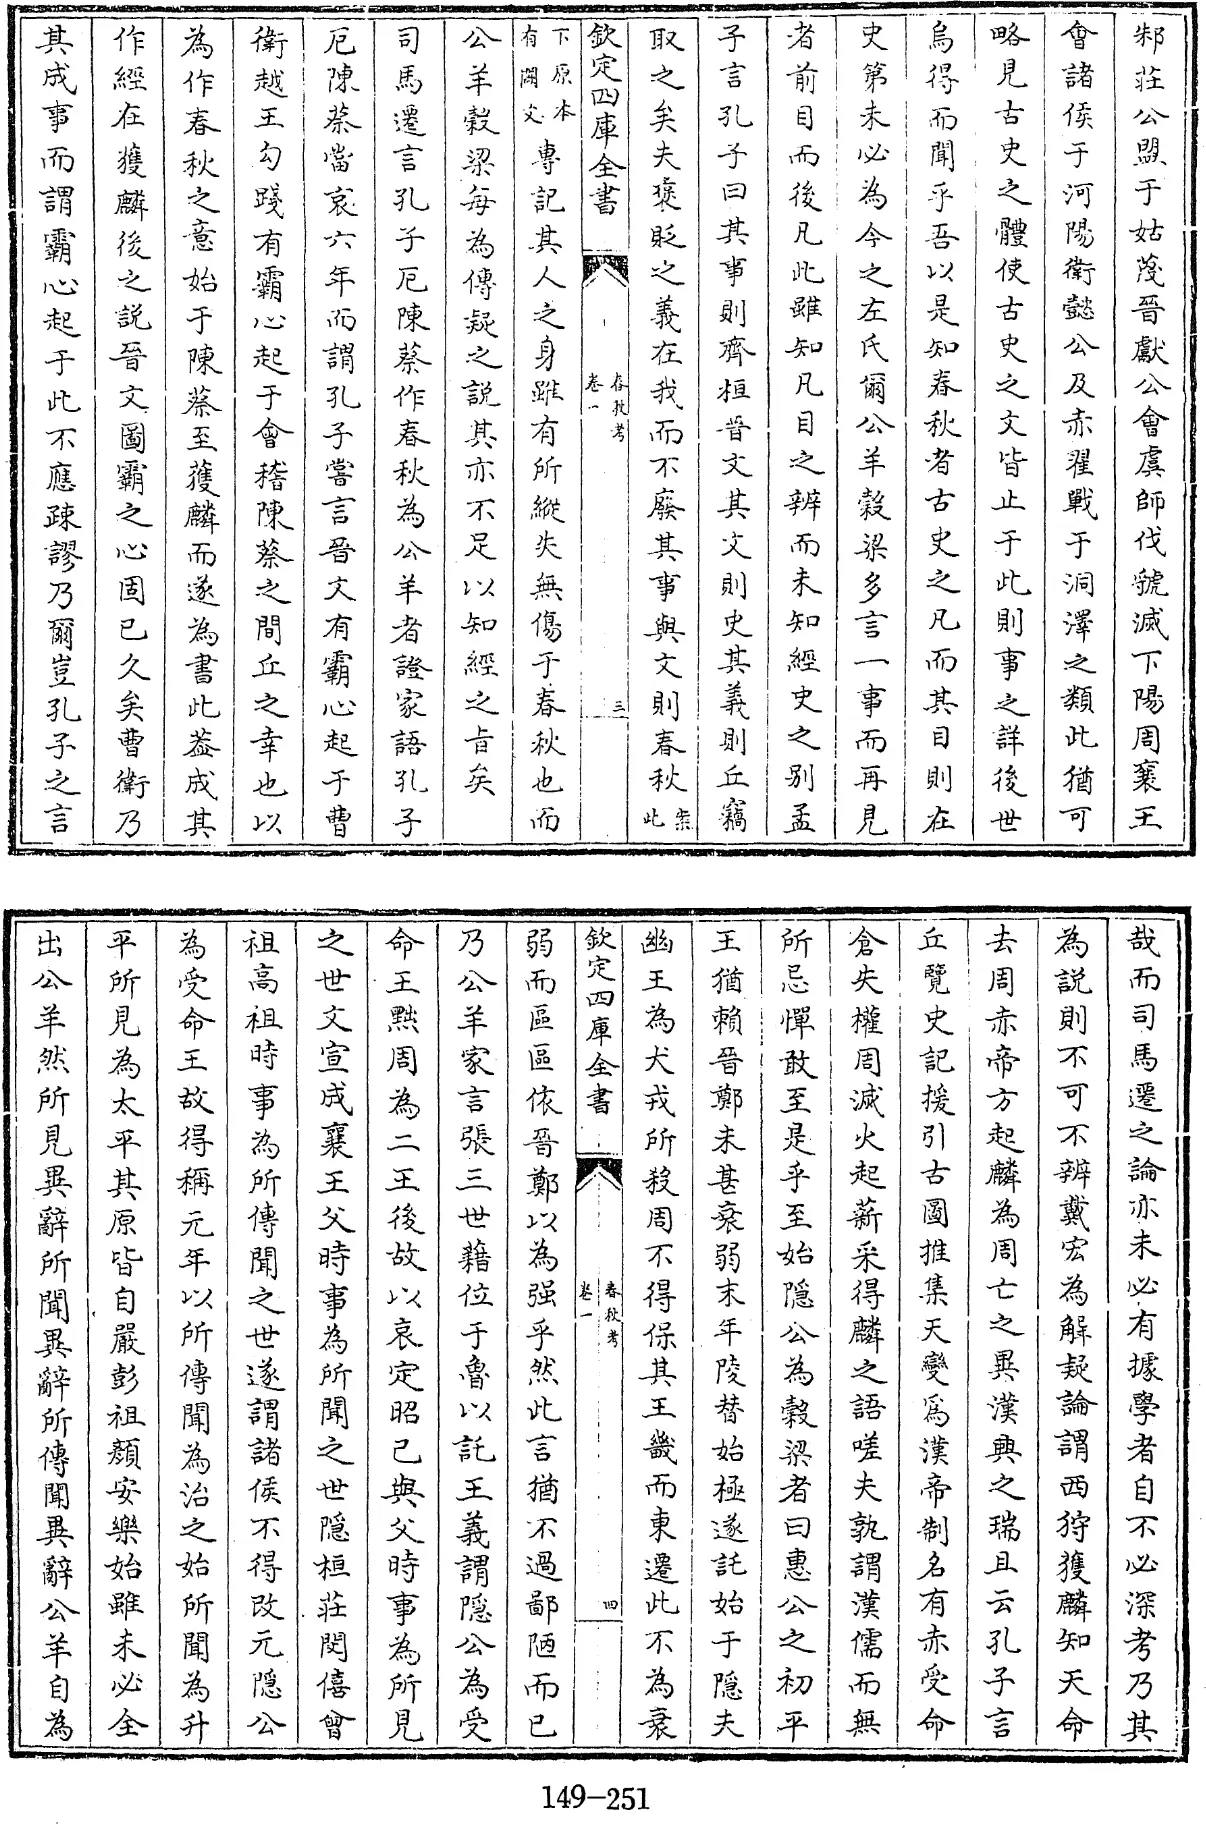 邾莊公盟于姑蔑晉獻公會虞師伐虢滅下陽周襄王
會諸侯于河陽衛懿公及赤翟戰于洞澤之類此猶可
略見古史之體使古史之文皆止于此則事之詳後世
烏得而聞乎吾以是知春秋者古史之凡而其目則在
史第未必為今之左氏爾公羊穀梁多言一事而再見
者前目而後凡此雖知凡目之辨而未知經史之別孟
子言孔子曰其事則齊桓晉文其文則史其義則丘竊
取之矣夫褒貶之義在我而不廢其事與文則春秋案此
欽定四庫全書
春秋考
卷一
三
下原本有闕文專記其人之身雖有所縱失無傷于春秋也而
公羊穀梁每為傳疑之說其亦不足以知經之旨矣
司馬遷言孔子厄陳蔡作春秋為公羊者證家語孔子
厄陳蔡當哀六年而謂孔子嘗言晉文有霸心起于曹
衛越王勾踐有霸心起于會稽陳蔡之間丘之幸也以
為作春秋之意始于陳蔡至獲麟而遂為書此葢成其
作經在獲麟後之說晉文圖霸之心固已久矣曹衛乃
其成事而謂霸心起于此不應疎謬乃爾豈孔子之言
哉而司馬遷之論亦未必有據學者自不必深考乃其
為說則不可不辨戴宏為解疑論謂西狩獲麟知天命
去周赤帝方起麟為周亡之異漢興之瑞且云孔子言
丘覽史記援引古圖推集天變爲漢帝制名有赤受命
倉失權周滅火起薪采得麟之語嗟夫孰謂漢儒而無
所忌憚敢至是乎至始隱公為穀梁者曰惠公之初平
王猶賴晉鄭未甚衰弱末年陵替始極遂託始于隱夫
幽王為犬戎所殺周不得保其王畿而東遷此不為衰
欽定四庫全書
春秋考
卷一
四
弱而區區依晉鄭以為强乎然此言猶不過鄙陋而已
乃公羊家言張三世藉位于魯以託王義謂隱公為受
命王黜周為二王後故以哀定昭已與父時事為所見
之世文宣成襄王父時事為所聞之世隱桓莊閔僖曾
祖高祖時事為所傳聞之世遂謂諸侯不得改元隱公
為受命王故得稱元年以所傳聞為治之始所聞為升
平所見為太平其原皆自嚴彭祖顏安樂始雖未必全
出公羊然所見異辭所聞異辭所傳聞異辭公羊自為
149-251